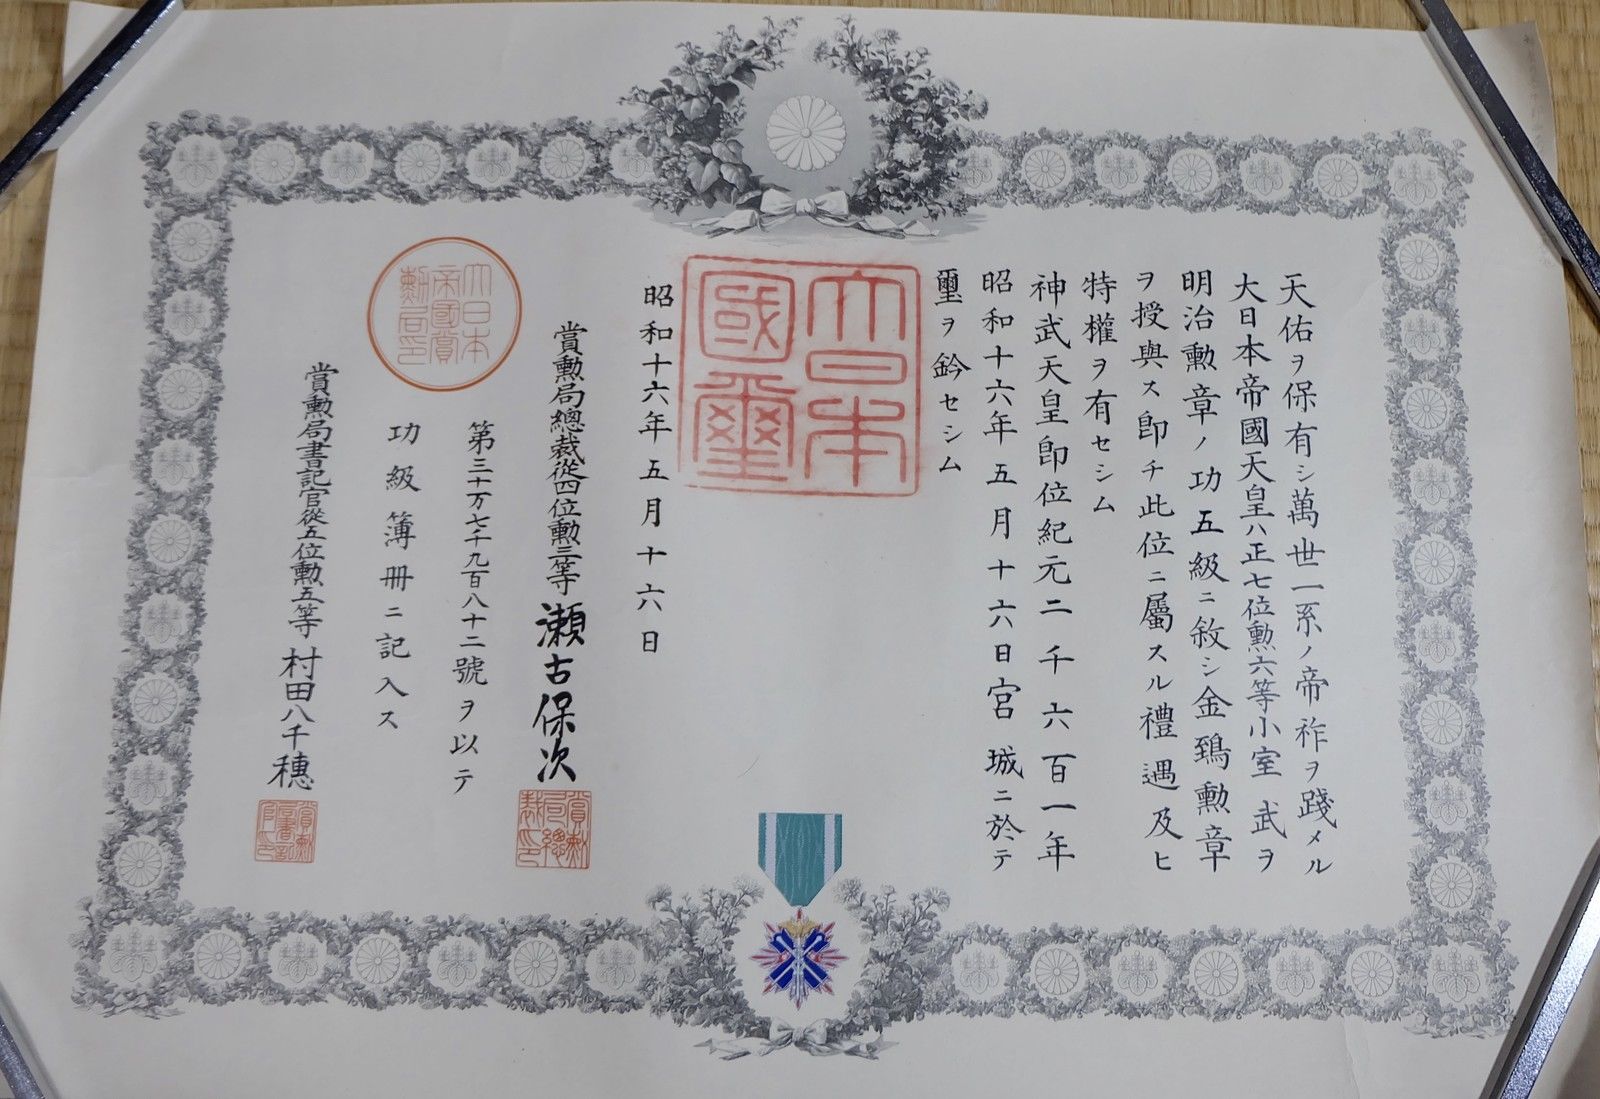 天佑ヲ保有シ萬世一系ノ帝祚ヲ踐メル
大日本帝國天皇ハ正七位勲六等小室武ヲ
明治勲章ノ功五級ニ敘シ金鵄勲章
ヲ授與ス卽チ此位ニ屬スル禮遇及ヒ
特權ヲ有セシム
神武天皇卽位紀元二千六百一年
昭和十六年五月十六日宮城ニ於テ
璽ヲ鈐セシム
大日本
國璽
昭和十六年五月十六日
賞勲局總裁從四位勲三等瀬古保次
賞勲局總裁印
第三十万七千九百八十二號ヲ以テ
功級簿冊ニ記入ス
大日本
帝國賞
勲局印
賞勲局書記官從五位勲五等村田八千穗
賞勲局書記官印